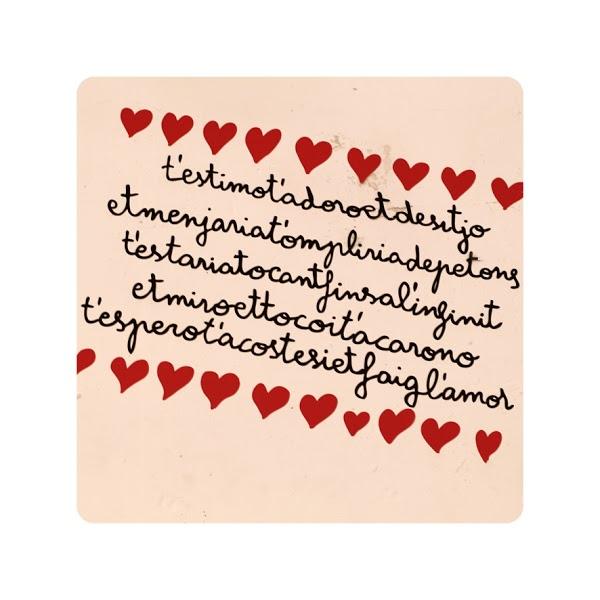 t'estimot'adoroetdesitjo
etmenjariat'ompliriadepetons
t'estariatocantfinsal'infinit
etmiroettocoit'acarono
t'esperot'acostesietfaigl'amor